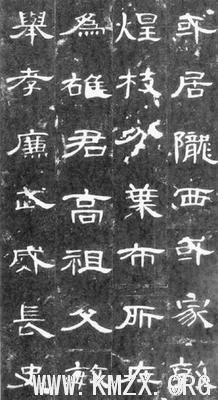 或居隴西或家敦
煌枝分葉布所在
為雄君高祖父敏
舉孝廉武威長史
WWW.KMZX.ORG